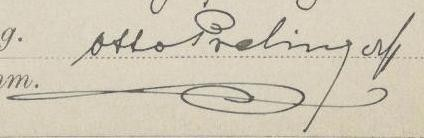 g. Otto Prelinger
mm.